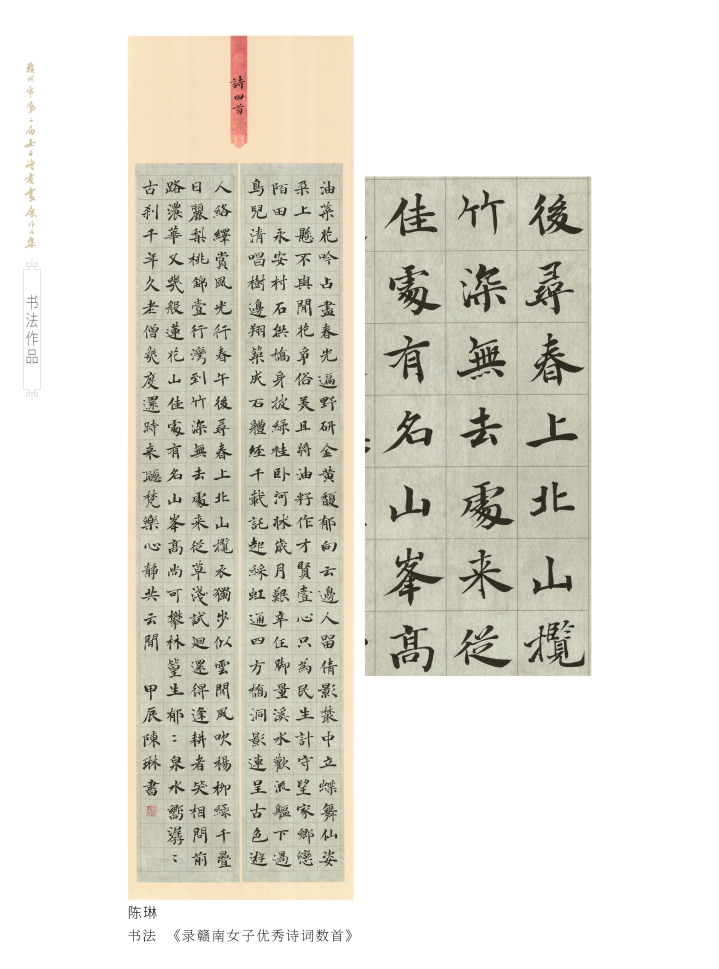 赣州市第二届女子诗书画展作品集
书法作品
詩四首
油菜花吟占盡春光遍野研金黄馥郁向云邊人留倩影叢中立蝶舞仙姿
朶上懸不與閒花爭俗羡且將油籽作才賢壹心只為民生計守望家鄉戀
陌田永安村石拱橋身披綠桂卧河牀歲月艱辛任脚量溪水歡流軀下過
鳥兒清唱樹邊翔築成石體經千載託起綵虹通四方橋洞影連呈古色遊
人絡繹賞風光行春午後尋春上北山攬衣獨步似雲閒風吹楊柳綠千疊
日麗梨桃錦壹行灣到竹深無去處来從草淺試迴還得逢耕者笑相問前
路濃華又幾般蓮花山佳處有名山峯髙尚可攀林篁生郁〻泉水響潺〻
古刹千年久老僧幾度還時来聽梵樂心静共云閒 甲辰陳琳書
後尋春上北山攬
竹深無去處来從
佳處有名山峯髙
陈琳
书法 《录赣南女子优秀诗词数首》